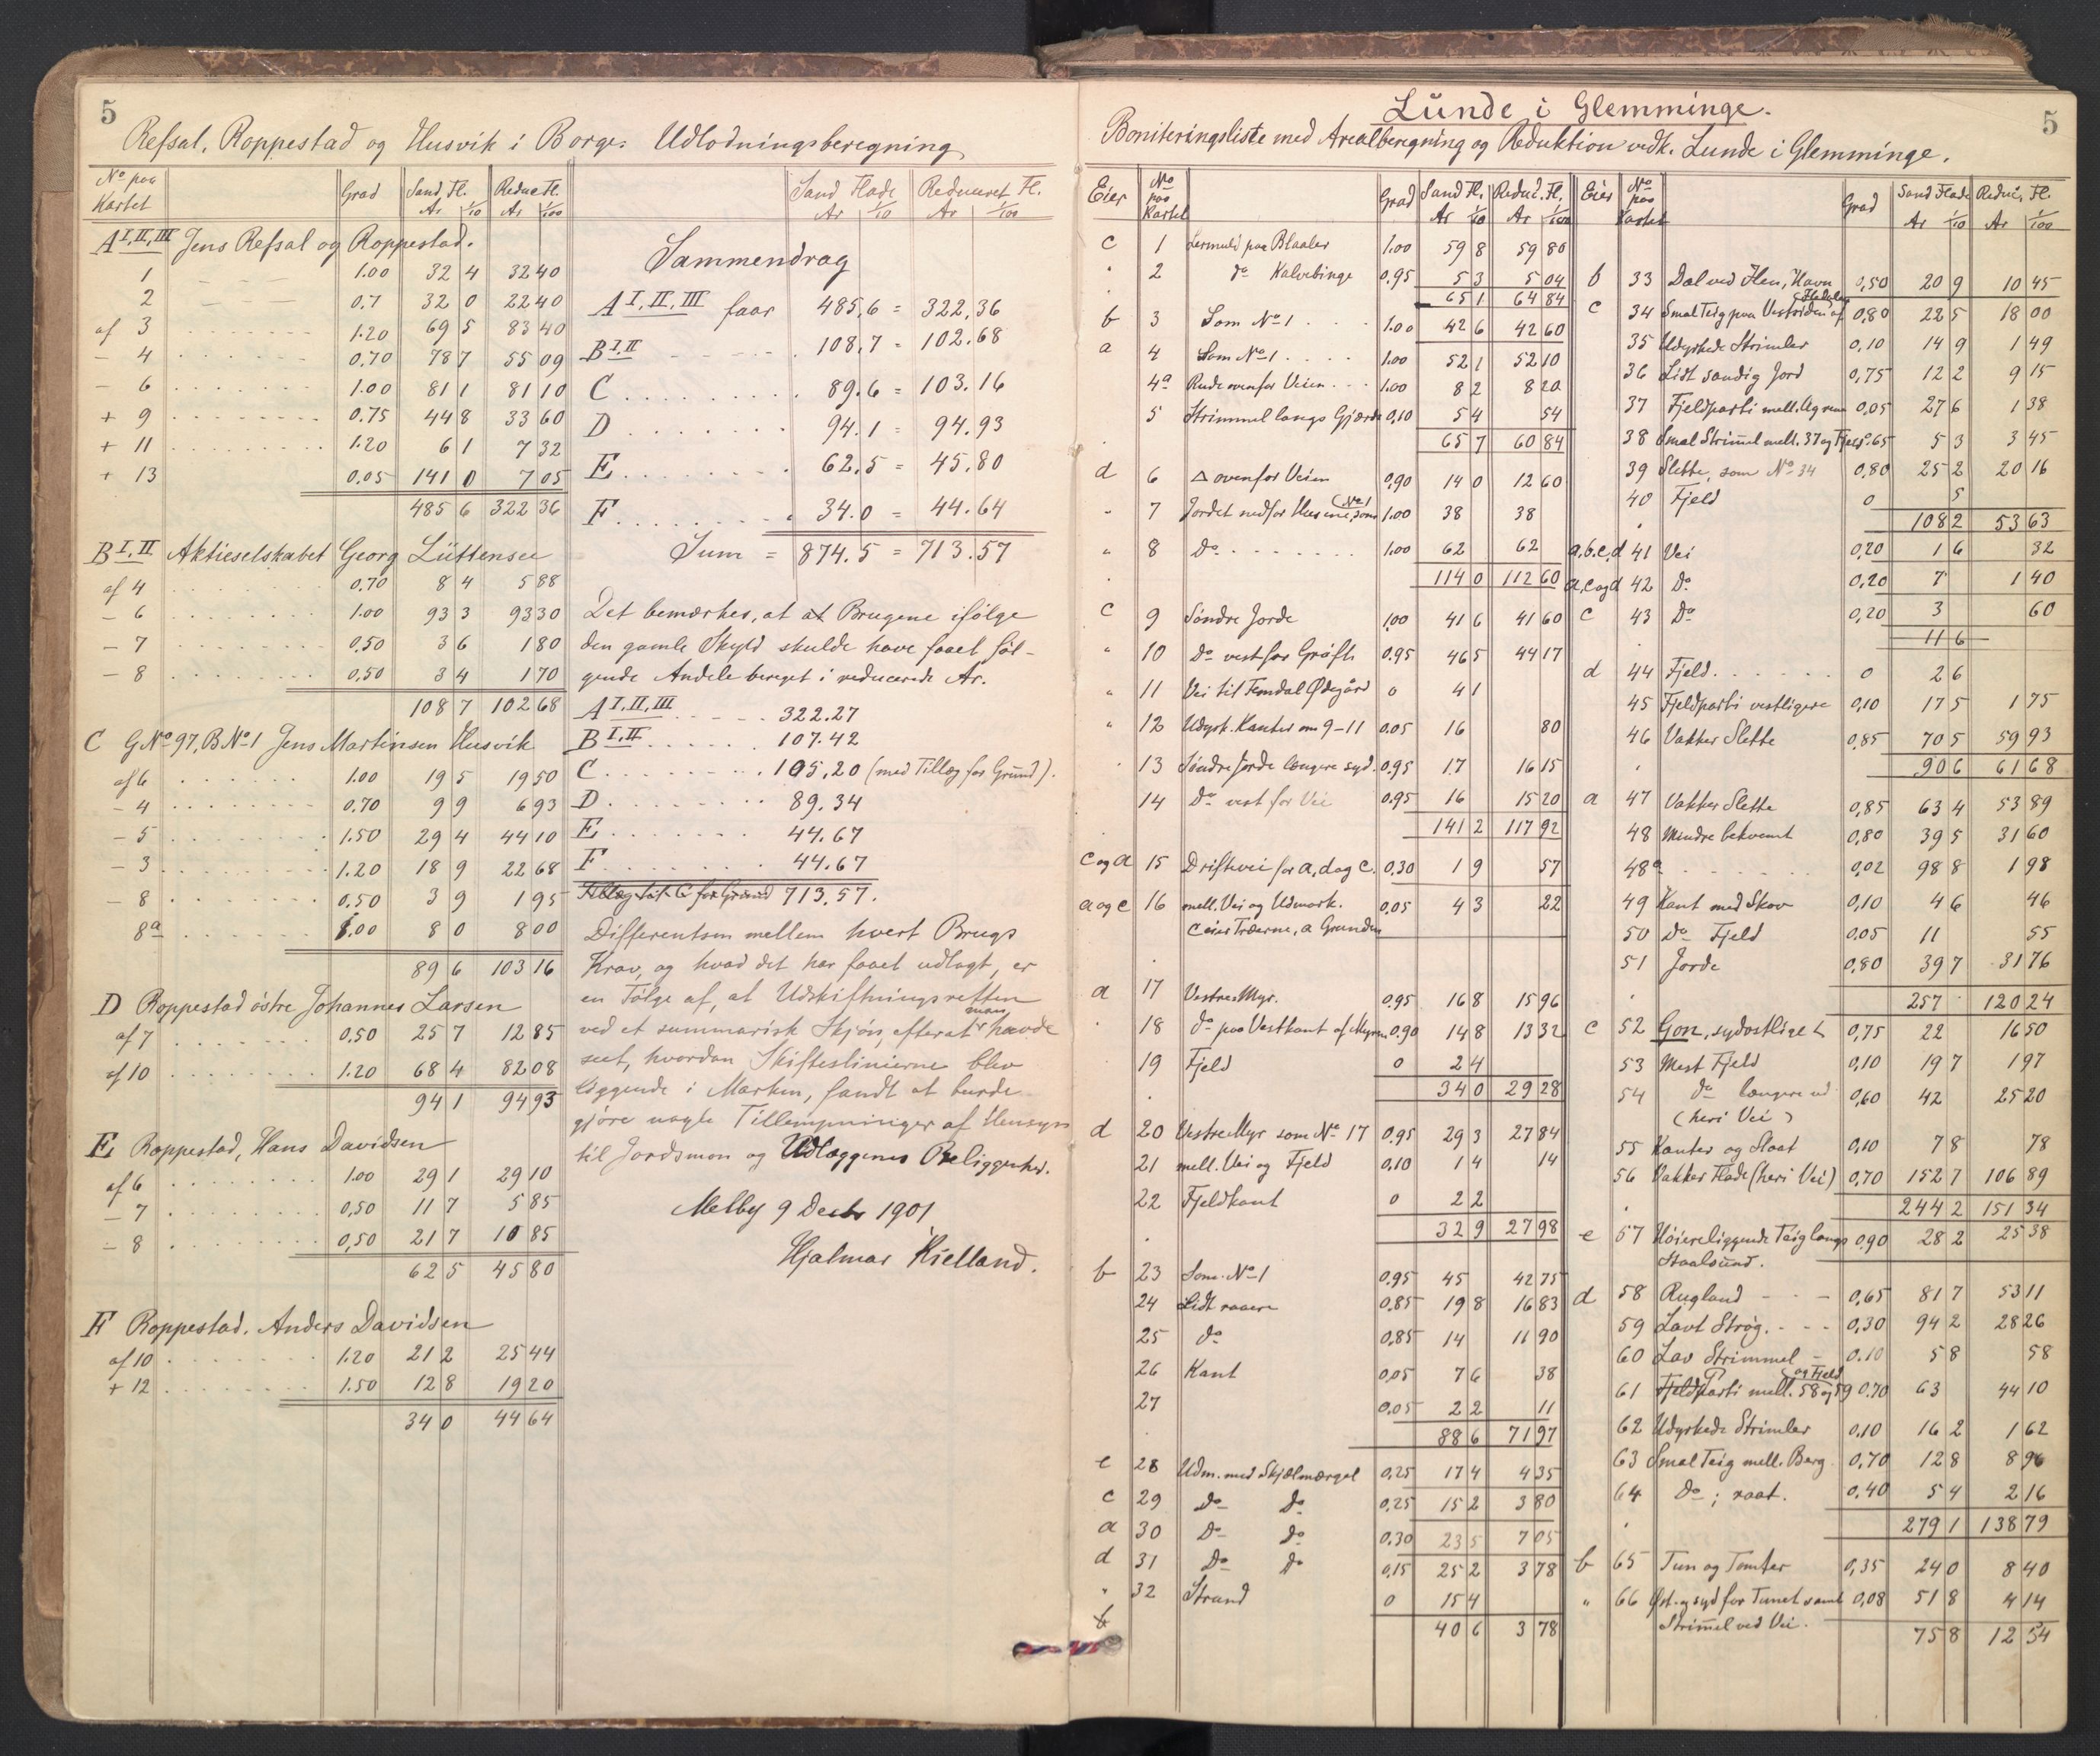 5
Refsal, Roppestad og Husvik i Borge: Udlodningsberegning
No paa Kartet Grad Sand Fl. Reduc. Fl.
Ar 1/10 Ar 1/100
A I, II, III Jens Refsal og Roppestad.
1 1.00 32 4 32 40
2 0.7 32 0 22 40
af 3 1.20 69 5 83 40
– 4 0.70 78 7 55 09
– 6 1.00 81 1 81 10
+ 9 0.75 44 8 33 60
+ 11 1.20 6 1 7 32
+ 13 0.05 141 0 7 05
485 6 322 36
B I, II Aktieselskabet Georg Lüttensee
af 4 0.70 8 4 5 88
– 6 1.00 93 3 93 30
– 7 0.50 3 6 1 80
– 8 0.50 3 4 1 70
108 7 102 68
C GNo 97, BNo 1 Jens Martinsen Husvik
af 6 1.00 19 5 19 50
– 4 0.70 9 9 6 93
– 5 1.50 29 4 44 10
– 3 1.20 18 9 22 68
– 8 0.50 3 9 1 95
8a 1.00 8 0 8 00
89 6 103 16
D Roppestad östre Johannes Larsen
af 7 0,50 25 7 12 85
af 10 1.20 68 4 82 08
94 1 94 93
E Roppestad, Hans Davidsen
af 6 1.00 29 1 29 10
– 7 0,50 11 7 5 85
– 8 0,50 21 7 10 85
62 5 45 80
F Roppestad. Anders Davidsen
af 10 1.20 21 2 25 44
+ 12 1.50 12 8 19 20
34 0 44 64
Sand Flade Reduceret Fl.
Ar 1/10 Ar 1/100
Sammendrag
A I, II, III faar 485,6 = 322,36
B I, II 108,7 = 102.68
C 89.6 = 103.16
D 94.1 = 94.93
E 62,5 = 45.80
F 34.0 = 44.64
Sum = 874.5 = 713.57
Det bemærkes, at at Brugene ifölge
den gamle Skyld skulde have faaet föl-
gende Andele bereget i reducerede Ar.
A I, II, III 322.27
B I, II 107.42
C 105,20 (med Tillæg for Grund).
D 89.34
E 44.67
F 44.67
Tillæg til C for Grund 713,57.
Differentsen mellem hvert Brugs
Krav, og hvad det har faaet udlagt, er
en Følge af, at Udskiftningsretten
ved et summarisk Skjön, efterat man havde
seet, hvordan Skifteslinierne blev
liggende i Marken, fandt at burde
gjöre nogle Tillempninger af Hensyn
til Jordsmon og Udlæggenes Beliggenhed.
Melby 9 Decbr 1901
Hjalmar Kielland.
Lunde i Glemminge.
5
Boniteringsliste med Arealberegning og Reduktion vedk. Lunde i Glemminge.
Eier No paa Kartet Grad Sand Fl. Reduc. Fl.
Ar 1/10 Ar 1/100
c 1 Lermuld paa Blaaler 1.00 59 8 59 80
" 2 do Kalvebinge 0.95 5 3 5 04
65 1 64 84
b 3 Som No 1 1.00 42 6 42 60
a 4 Som No 1 1.00 52 1 52 10
4a Rude ovenfor Veien 1.00 8 2 8 20
5 Strimmel langs Gjærde 0,10 5 4 54
65 7 60 84
d 6 △ ovenfor Veien 0,90 14 0 12 60
" 7 Jordet nedfor Husene, som (No 1 1.00 38 38
" 8 Do 1.00 62 62
114 0 112 60
c 9 Søndre Jorde 1,00 41 6 41 60
" 10 Do vest for Grøft 0.95 46 5 44 17
" 11 Vei til Femdal Ødegård 0 4 1
" 12 Udyrk. Kanter om 9–11 0.05 16 80
" 13 Søndre Jorde længere syd. 0.95 17 16 15
14 Do vest for Vei 0.95 16 15 20
141 2 117 92
c og a 15 Driftevei for a, d og c. 0,30 1 9 57
a og c 16 mell. Vei og Udmark. 0,05 4 3 22
c eier Træerne, a Grunden
a 17 Vestre Myr. 0.95 16 8 15 96
" 18 do paa Vestkant af Myren 0.90 14 8 13 32
19 Fjeld 0 2 4
34 0 29 28
d 20 Vestre Myr som No 17 0,95 29 3 27 84
21 mell. Vei og Fjeld 0,10 1 4 14
22 Fjeldkant 0 2 2
32 9 27 98
b 23 Som No 1 0.95 45 42 75
24 Lidt raaere 0.85 19 8 16 83
25 do 0.85 14 11 90
26 Kant 0,05 7 6 38
27 0.05 2 2 11
88 6 71 97
e 28 Udm. med Skjælmærgel 0,25 17 4 4 35
c 29 Do Do 0,25 15 2 3 80
a 30 Do do 0,30 23 5 7 05
d 31 Do do 0,15 25 2 3 78
" 32 Strand 0 15 4
40 6 3 78
Eier No paa Kartet Grad Sand Flade Reduc. Fl.
Ar 1/10 Ar 1/100
b 33 Dal ved Flen, Havn 0,50 20 9 10 45
c 34 Smal Teig paa Vestsiden af 0,80 22 5 18 00
35 Udyrkede Strimler 0,10 14 9 1 49
36 Lidt sandig Jord 0,75 12 2 9 15
37 Fjeldparti mell. Agrene 0,05 27 6 1 38
38 Smal Strimel mell. 37 og Fjeld 0.65 5 3 3 45
39 Slette, som No 34 0,80 25 2 20 16
40 Fjeld 0 5
108 2 53 63
a.b.c,d 41 Vei 0,20 1 6 32
a,c og d 42 Do 0,20 7 1 40
c 43 Do 0,20 3 60
11 6
d 44 Fjeld 0 2 6
45 Fjeldparti vestligere 0,10 17 5 1 75
46 Vakker Slette 0,85 70 5 59 93
90 6 61 68
a 47 Vakker Slette 0,85 63 4 53 89
48 Mindre bekvemt 0,80 39 5 31 60
48a 0,02 98 8 1 98
49 Kant med Skov 0,10 4 6 46
50 Do Fjeld 0,05 11 55
51 Jorde 0,80 39 7 31 76
257 120 24
c 52 Gon, sydostligst 0,75 22 16 50
53 Mest Fjeld 0,10 19 7 1 97
54 do længere ud 0,60 42 25 20
(heri Vei)
55 Kanter og Slaat 0,10 7 8 78
56 Vakker Flade (heri Vei) 0,70 152 7 106 89
244 2 151 34
e 57 Høiereliggende Teig langs 0,90 28 2 25 38
Staalsund.
d 58 Rugland 0,65 81 7 53 11
59 Lavt Strøg. 0,30 94 2 28 26
60 Lav Strimmel 0.10 5 8 58
61 Fjeldparti mell. 58 og 59 og Fjeld 0.70 63 44 10
62 Udyrkede Strimler 0.10 16 2 1 62
63 Smal Teig mell. Berg 0,70 12 8 8 96
64 do; raat. 0,40 5 4 2 16
279 1 138 79
b 65 Tun og Tomter 0,35 24 0 8 40
" 66 Øst- og syd for Tunet samt 0,08 51 8 4 14
Strimel ved Vei.
75 8 12 54